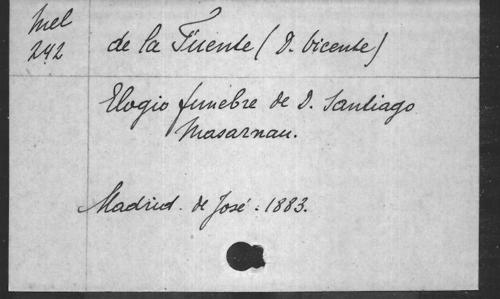 Mel
242
de la Füente (D. Vicente)
Elogio funebre de D. Santiago
Masarnau.
Madrid. de José. 1883.